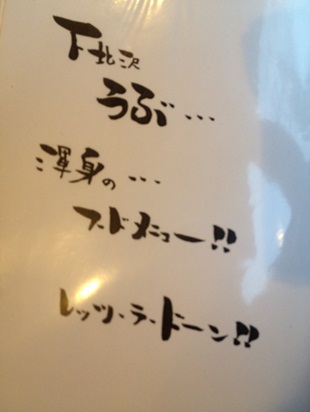 下北沢
うぶ…
渾身の…
フードメニュー!!
レッツ・ラ・ドーン!!